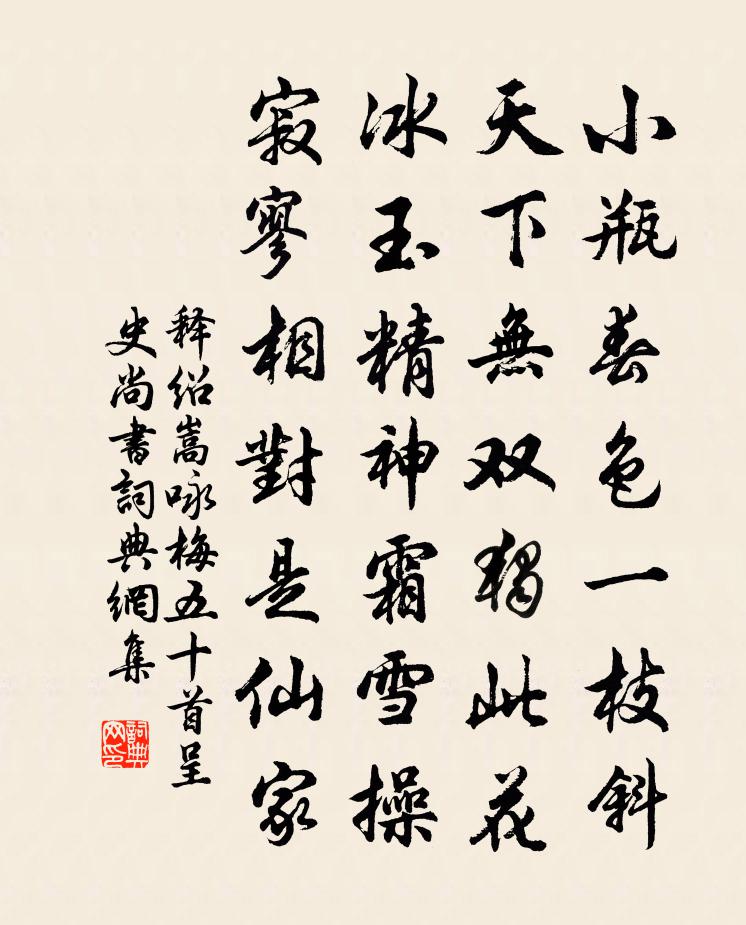 小瓶春色一枝斜
天下無双獨此花
冰玉精神霜雪操
寂寥相對是仙家
释绍嵩咏梅五十首呈
史尚書詞典網集
詞典網印